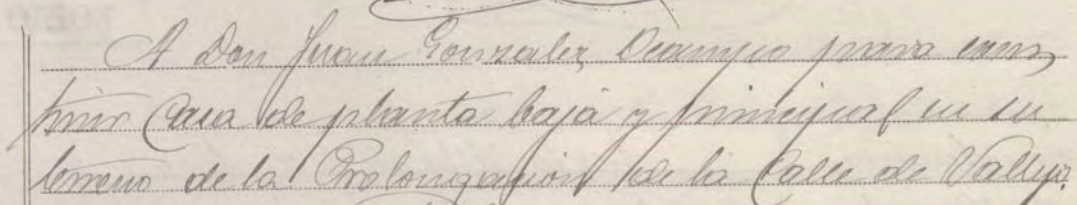 A Don Juan Gonzalez Ocampo para cons
truir Casa de planta baja y principal en su
terreno de la Prolongación de la Calle de Vallejo.